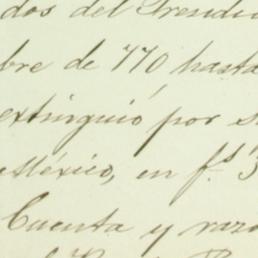 dos del Presidi
bre de 770 hasta
extinguió por s
México, en f.s 3
Cuenta y razo